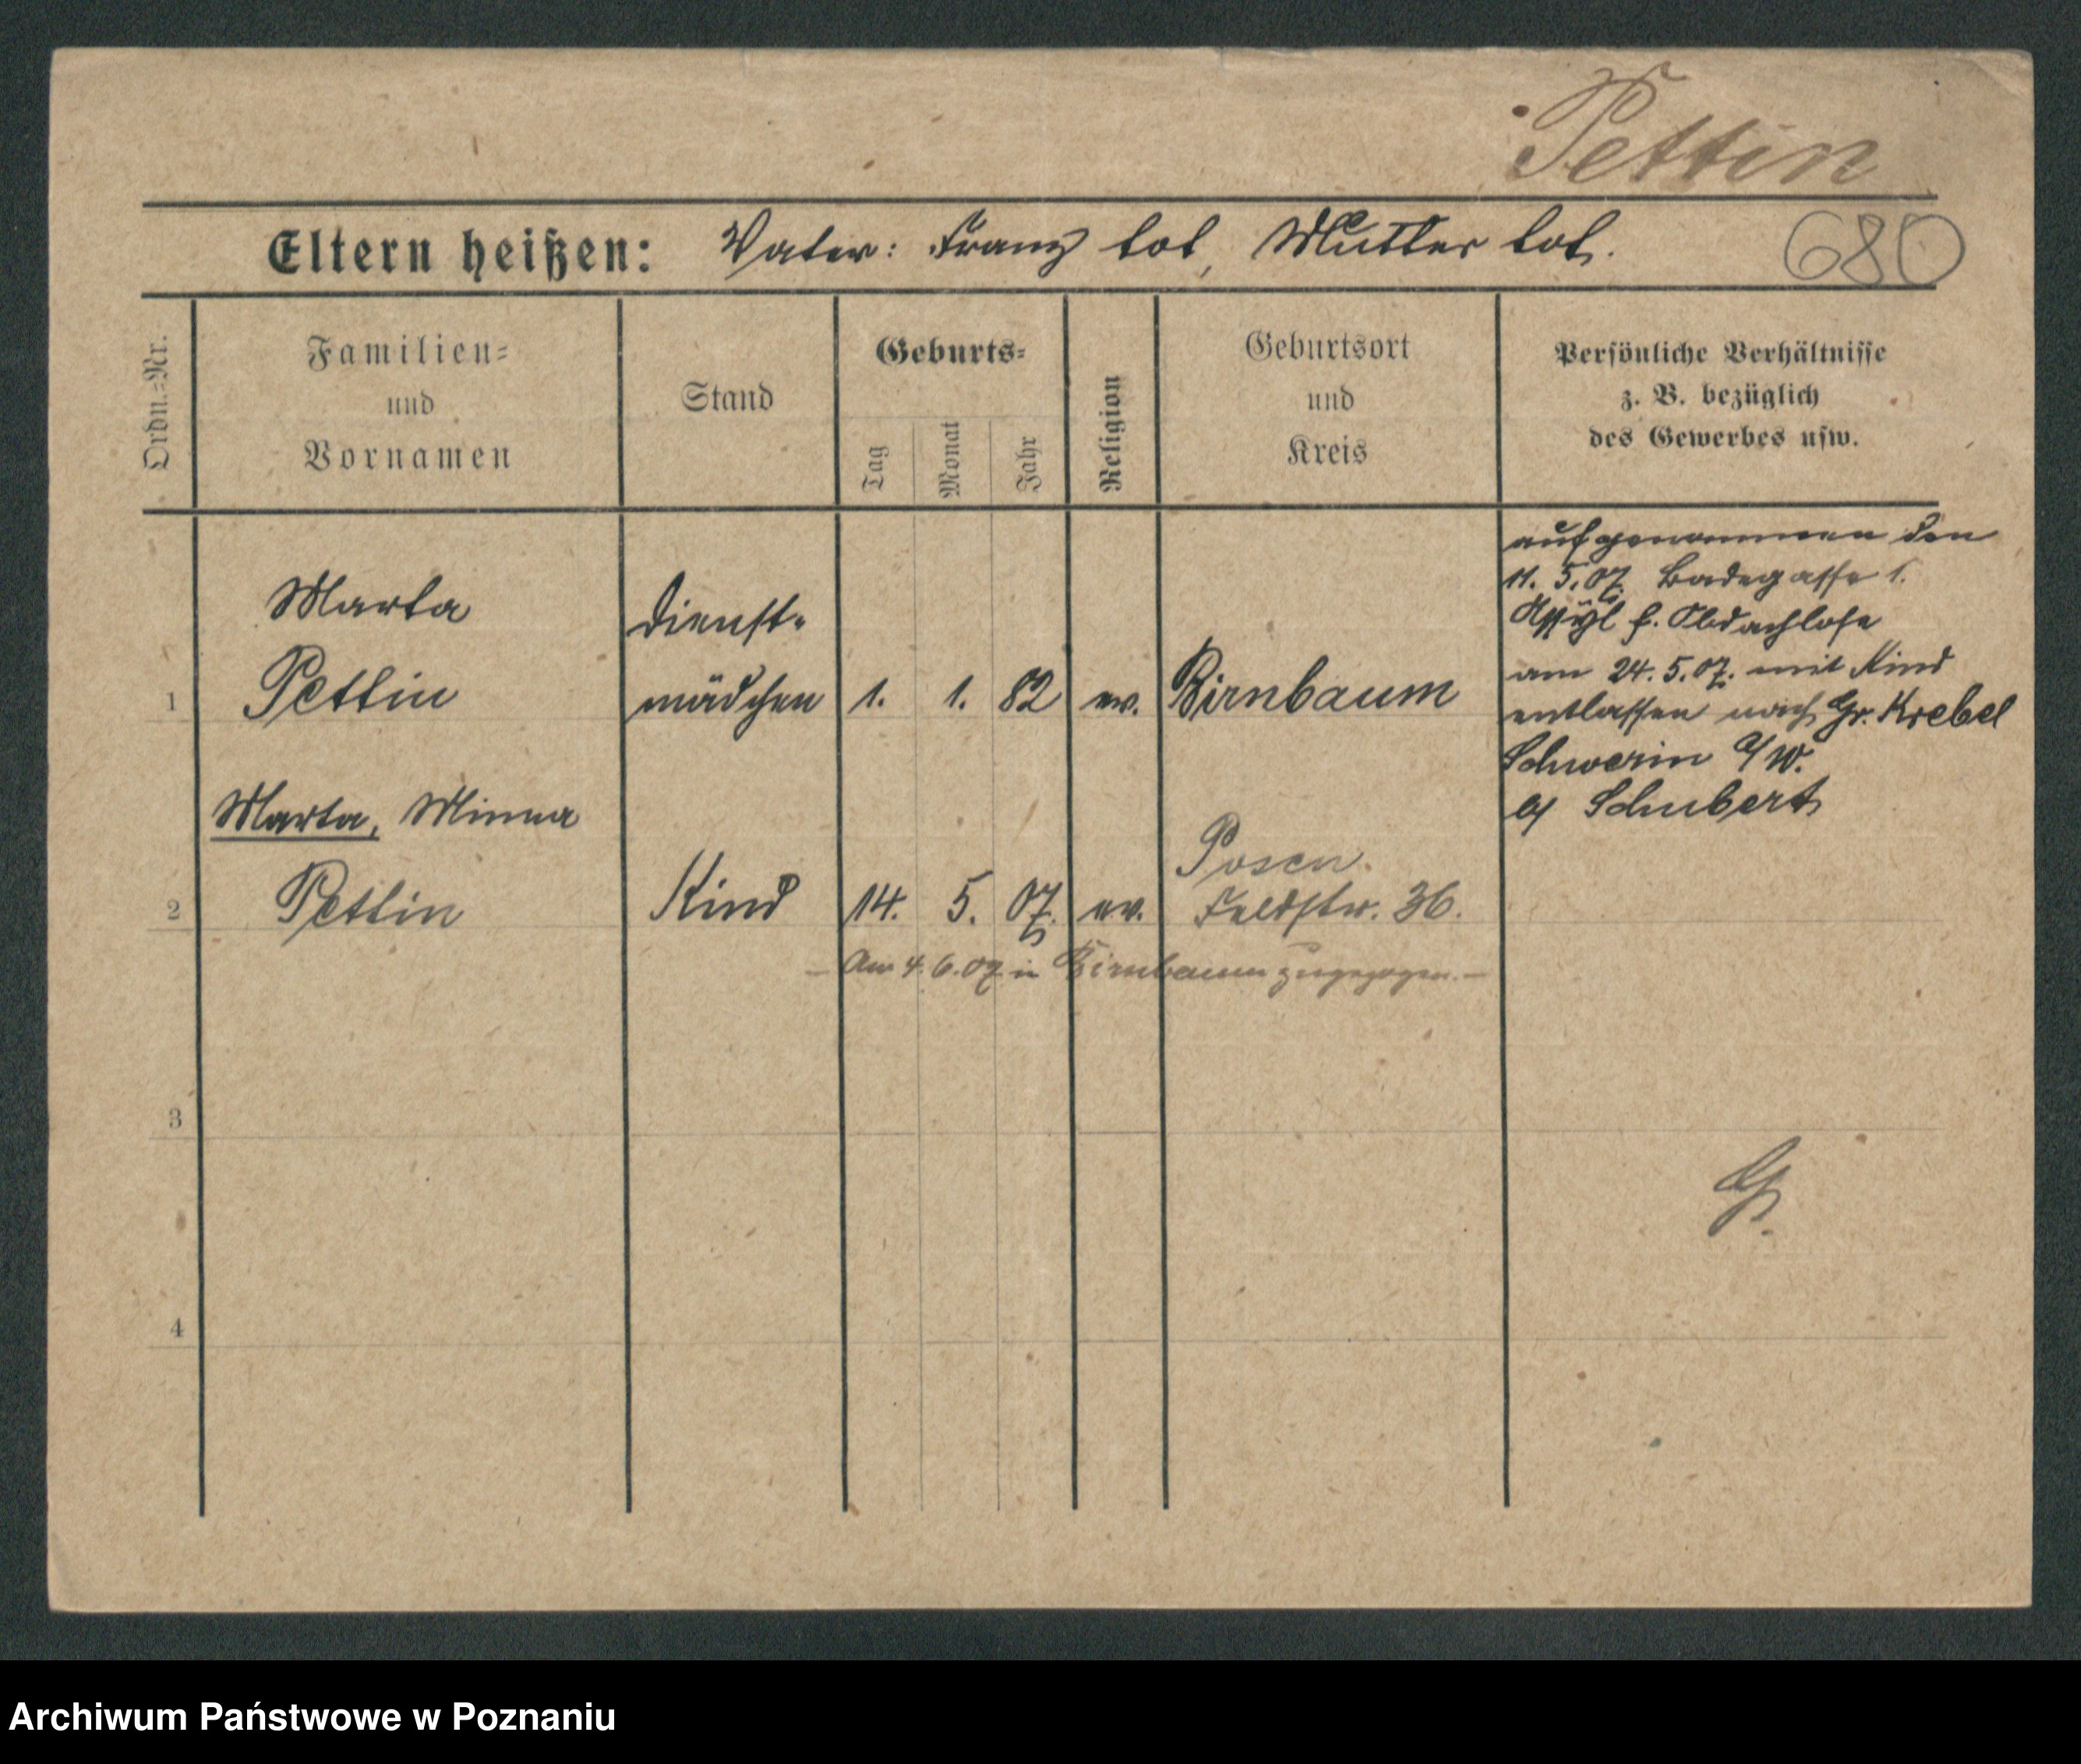 Pettin
Eltern heißen: Vater: Franz tot, Mutter tot.
680
Ordn.-Nr.
Familien-
und
Vornamen
Stand
Geburts-
Tag
Monat
Jahr
Religion
Geburtsort
und
Kreis
Persönliche Verhältnisse
z. B. bezüglich
des Gewerbes usw.
Marta
Pettin
1
Dienst-
mädchen
1. 1. 82 ev. Birnbaum
aufgenommen den
11. 5. 07. Badegasse 1.
Assyl f. Obdachlose
am 24. 5. 07. mit Kind
entlassen nach Gr. Krebel
Schwerin a/W.
Schubert
Marta, Minna
Pettin
2
Kind 14. 5. 07. ev.
Posen.
Feldstr. 36.
– Am 4. 6. 07 in Birnbaum zugezogen. –
3
4
Archiwum Państwowe w Poznaniu